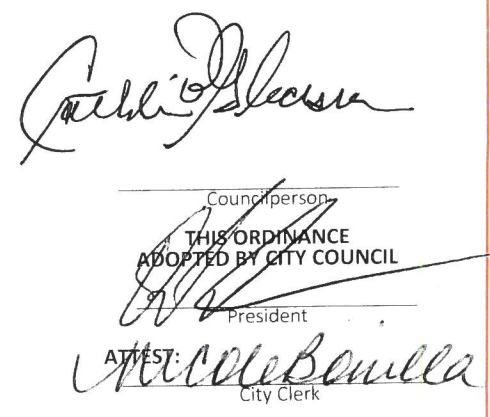 Councilperson
THIS ORDINANCE
ADOPTED BY CITY COUNCIL
President
ATTEST:
Nicole Bonilla
City Clerk